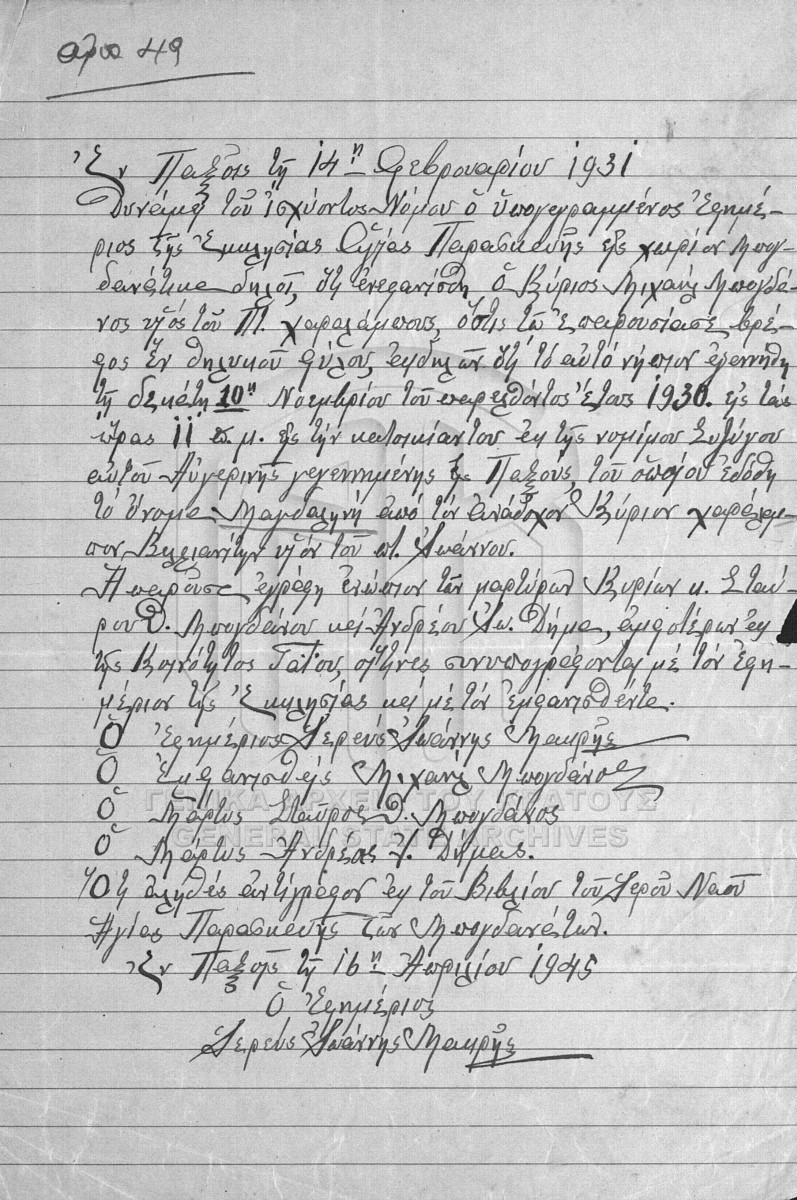 αρθ 49
Ἐν Παξοῖς τῇ 14ῃ Φεβρουαρίου 1931
Δυνάμει τοῦ ἰσχύοντος Νόμου ὁ ὑπογεγραμμένος Ἐφημέ-
ριος τῆς Ἐκκλησίας Ἁγίας Παρασκευῆς εἰς χωρίον Μπογ-
δανάτικα δηλοῖ, ὅτι ἐνεφανίσθη ὁ Κύριος Μιχαὴλ Μπογδά-
νος υἱός τοῦ Π. χαραλάμπους, ὅστις τῷ ἐπαρουσίασε βρέ-
φος ἓν θηλυκοῦ φύλου, ἐκδηλῶν ὅτι τὸ αὐτό νήπιον ἐγεννήθη
τῇ δεκάτῃ 10ῃ Νοεμβρίου τοῦ παρελθόντος ἔτους 1930. εἰς τάς
ὥρας 11 π. μ. εἰς τὴν κατοικίαν του ἐκ τῆς νομίμου Συζύγου
αὐτοῦ Αὐγερινῆς γεγεννημένης εἰς Παξούς, τοῦ ὁποίου ἐδόθη
τὸ ὄνομα Μαγδαληνή ἀπό τὸν ἀνάδοχον Κύριον χαράλαμ-
πον Βελιανίτην υἱόν τοῦ π. Ἰωάννου.
Ἡ παροῦσα ἐγράφη ἐνώπιον τῶν μαρτύρων Κυρίων κ. Σταύ-
ρου Δ. Μπογδάνου καί Ἀνδρέου Ἰω. Δήμα, ἀμφοτέρων ἐκ
τῆς Κοινότητος Γαΐου, οἵτινες συνυπογράφονται μέ τὸν Ἐφη-
μέριον τῆς Ἐκκλησίας καί μέ τόν ἐμφανισθέντα.
Ὁ Ἐφημέριος Ἱερεύς Ἰωάννης Μακρῆς
Ὁ Ἐμφανισθείς Μιχαήλ Μπογδάνος
Ὁ Μάρτυς Σταῦρος Δ. Μπογδάνος
Ὁ Μάρτυς Ἀνδρέας Ἰ. Δήμας.
Ὅτι ἀληθές ἀντίγραφον ἐκ τοῦ Βιβλίου τοῦ Ἱεροῦ Ναοῦ
Ἁγίας Παρασκευῆς τῶν Μπογδανάτων.
Ἐν Παξοῖς τῇ 16ῃ Ἀπριλίου 1945
Ὁ Ἐφημέριος
Ἱερεύς Ἰωάννης Μακρῆς
ΓΕΝΙΚΑ ΑΡΧΕΙΑ ΤΟΥ ΚΡΑΤΟΥΣ
GENERAL STATE ARCHIVES